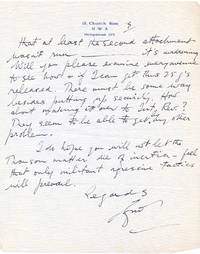 12, Church Row,
N W 3
that at least the second attachment
wasn't run it's maddening
Will you please examine everywhere
to see how - if I can get this 25 g's
released. There must be some way
besides putting up security. How
about making it over to Int. Rev.?
They seem to be able to get any other
problem.
I do hope you will not let the
Thomson matter die of inertia - feel
that only militant agressive tactics
will prevail.
Regards